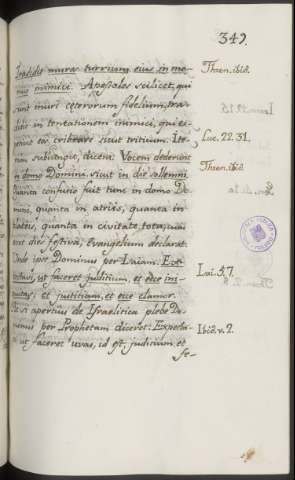 349.
Tradidit muros turrium ejus in ma-
nus inimici. Apostolos scilicet, qui
sunt muri ceterorum fidelium, tra-
didit in tentationem inimici, qui ex-
eos cribrare sicut triticum. Ite-
rum subjungit, dicens: Vocem dederunt
in domo Domini, sicut in die solemni.
Quanta confusio fuit tunc in domo Do-
mini, quanta in atriis, quanta in
quanta in civitate tota, cum
dies festiva, Evangelium declarat.
Unde ipse Dominus per Isaiam: Ex-
ut faceret judicium, et ecce ini-
quitas; et justitiam, et ecce clamor.
Ac si apertius de Israelitica plebe Do-
minus per Prophetam diceret: Expecta-
vi ut faceret uvas, id est, judicium, et
fe-
Thren. ibid.
Luc. 22. 31.
Thren. ibid.
Isai. 5. 7.
Ibid. v. 2.